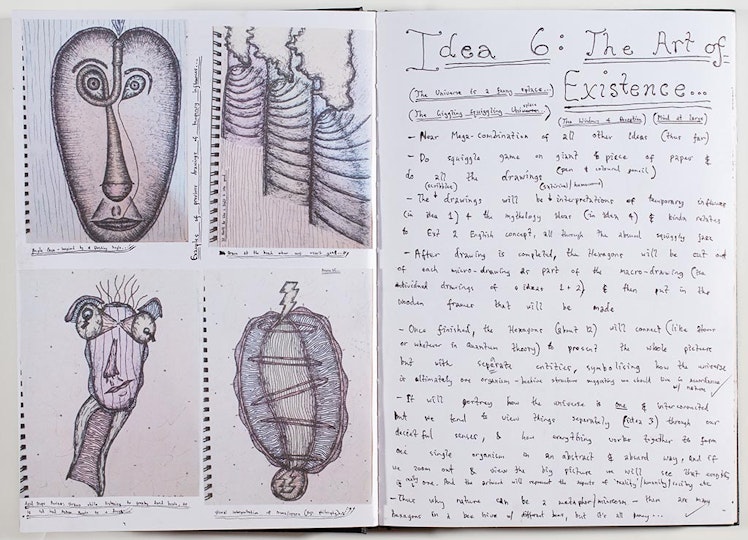 Examples of previous drawings of temporary influence...
Idea 6: The Art of
Existence...
(The Universe is a funny place...)
(The Giggling Squiggling Universe)
(The Windows of Perception)
(Mind at large)
- Near Mega-combination of all other Ideas (thus far)
- Do squiggle game on giant piece of paper &
do all the drawings (pen & coloured pencil)
(scribbles)
- The drawings will be interpretations of temporary influence
(in idea 1) & the mythology ideas (in idea 4) & kinda relates
to Ext 2 English concept, all through the absurd squiggly
- After drawing is completed, the Hexagons will be cut out
of each micro-drawing as part of the macro-drawing (the
individual drawings of ideas 1 & 2) & then put in the
wooden frames that will be made
- Once finished, the Hexagons (about 12) will connect (like atoms
or whatever in quantum theory) to present the whole picture
but with separate entities, symbolising how the universe
is ultimately one organism - beehive structure suggesting we should live in accordance
w/ nature
- It will portray how the universe is one & interconnected
but we tend to view things separately (idea 3) through our
deceitful senses, & how everything works together to form
one single organism in an abstract & absurd way, And if
we zoom out & view the big picture we will see that everything
is only one. And the artwork will represent the aspects of 'reality'/humanity/society etc
- Thus why nature can be a metaphor/microcosm - there are many
hexagons in a bee hive w/ different bees, but it's all